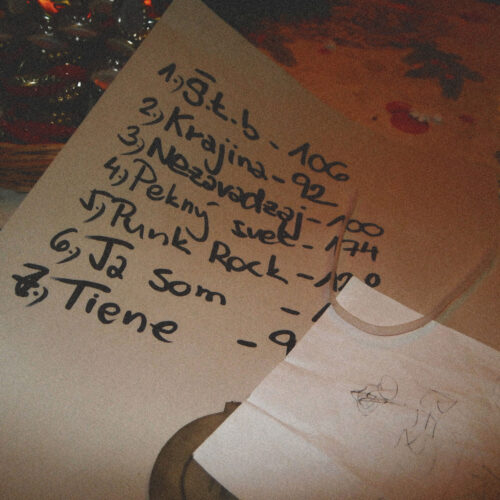 1.) Š.t.b - 106
2.) Krajina - 92
3.) Nezavadzaj - 100
4.) Pekný svet - 174
5.) Punk Rock -
6.) Ja som -
7.) Tiene - 9